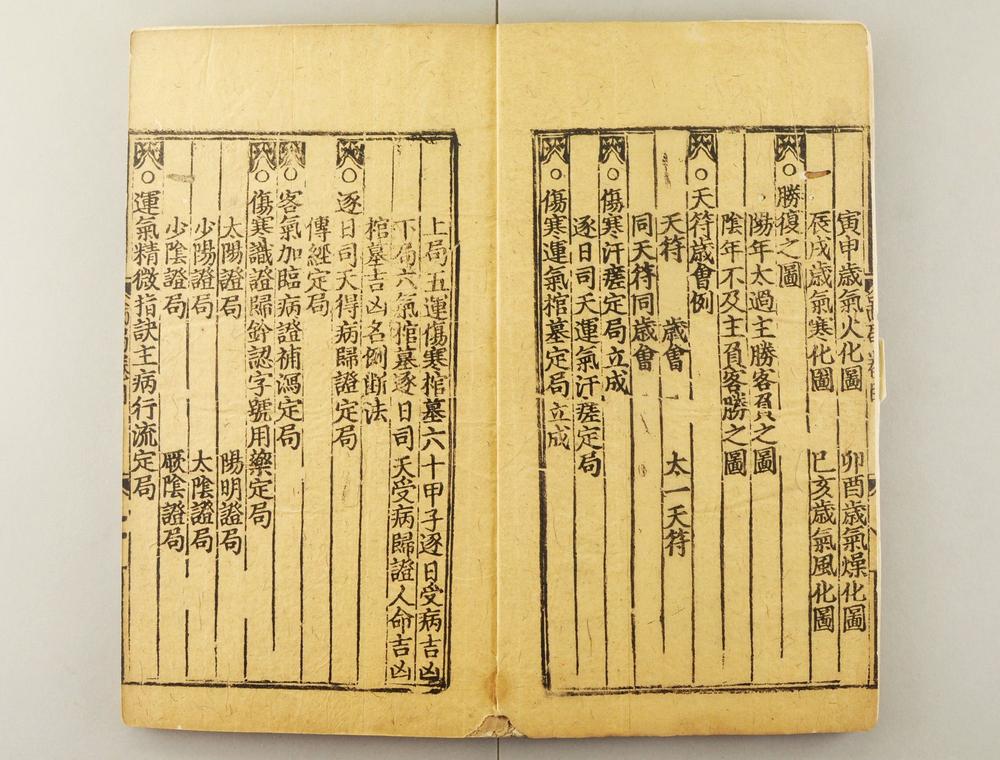 寅申歲氣火化圖 卯酉歲氣燥化圖
辰戌歲氣寒化圖 巳亥歲氣風化圖
○勝復之圖
陽年太過主勝客負之圖
陰年不及主負客勝之圖
○天符歲會例
天符 歲會 太一天符
同天符同歲會
○傷寒汗瘥定局立成
逐日司天運氣汗瘥定局
○傷寒運氣棺墓定局立成
上局五運傷寒棺墓六十甲子逐日受病吉凶
下局六氣棺墓逐日司天受病歸證人命吉凶
棺墓吉凶名例斷法
○逐日司天得病歸證定局
傳經定局
○客氣加臨病證補瀉定局
○傷寒識證歸鈐認字號用藥定局
太陽證局 陽明證局
少陽證局 太陰證局
少陰證局 厥陰證局
○運氣精微指訣主病行流定局